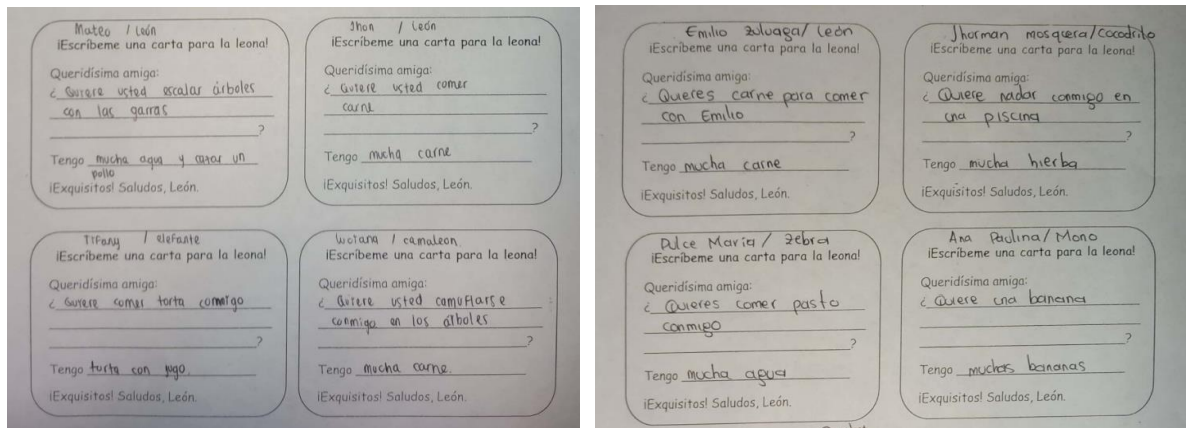 Mateo / León
¡Escríbeme una carta para la leona!
Queridísima amiga:
¿ Quiere usted escalar árboles
con las garras
?
Tengo mucha agua y cazar un
pollo
¡Exquisitos! Saludos, León.
Jhon / León
¡Escríbeme una carta para la leona!
Queridísima amiga:
¿ Quiere usted comer
carne
?
Tengo mucha carne
¡Exquisitos! Saludos, León.
Tifany / elefante
¡Escríbeme una carta para la leona!
Queridísima amiga:
¿ Quiere comer torta conmigo
?
Tengo torta con jugo.
¡Exquisitos! Saludos, León.
/ camaleon
¡Escríbeme una carta para la leona!
Queridísima amiga:
¿ Quiere usted camuflarse
conmigo en los árboles
?
Tengo mucha carne.
¡Exquisitos! Saludos, León.
Emilio Zuluaga/ León
¡Escríbeme una carta para la leona!
Queridísima amiga:
¿ Quieres carne para comer
con Emilio
?
Tengo mucha carne
¡Exquisitos! Saludos, León.
Jhorman mosquera/cocodrilo
¡Escríbeme una carta para la leona!
Queridísima amiga:
¿ Quiere nadar conmigo en
una piscina
?
Tengo mucha hierba
¡Exquisitos! Saludos, León.
Dulce Maria / zebra
¡Escríbeme una carta para la leona!
Queridísima amiga:
¿ Quieres comer pasto
conmigo
?
Tengo mucha agua
¡Exquisitos! Saludos, León.
Ana Paulina/ Mono
¡Escríbeme una carta para la leona!
Queridísima amiga:
¿ Quiere una banana
?
Tengo muchas bananas
¡Exquisitos! Saludos, León.